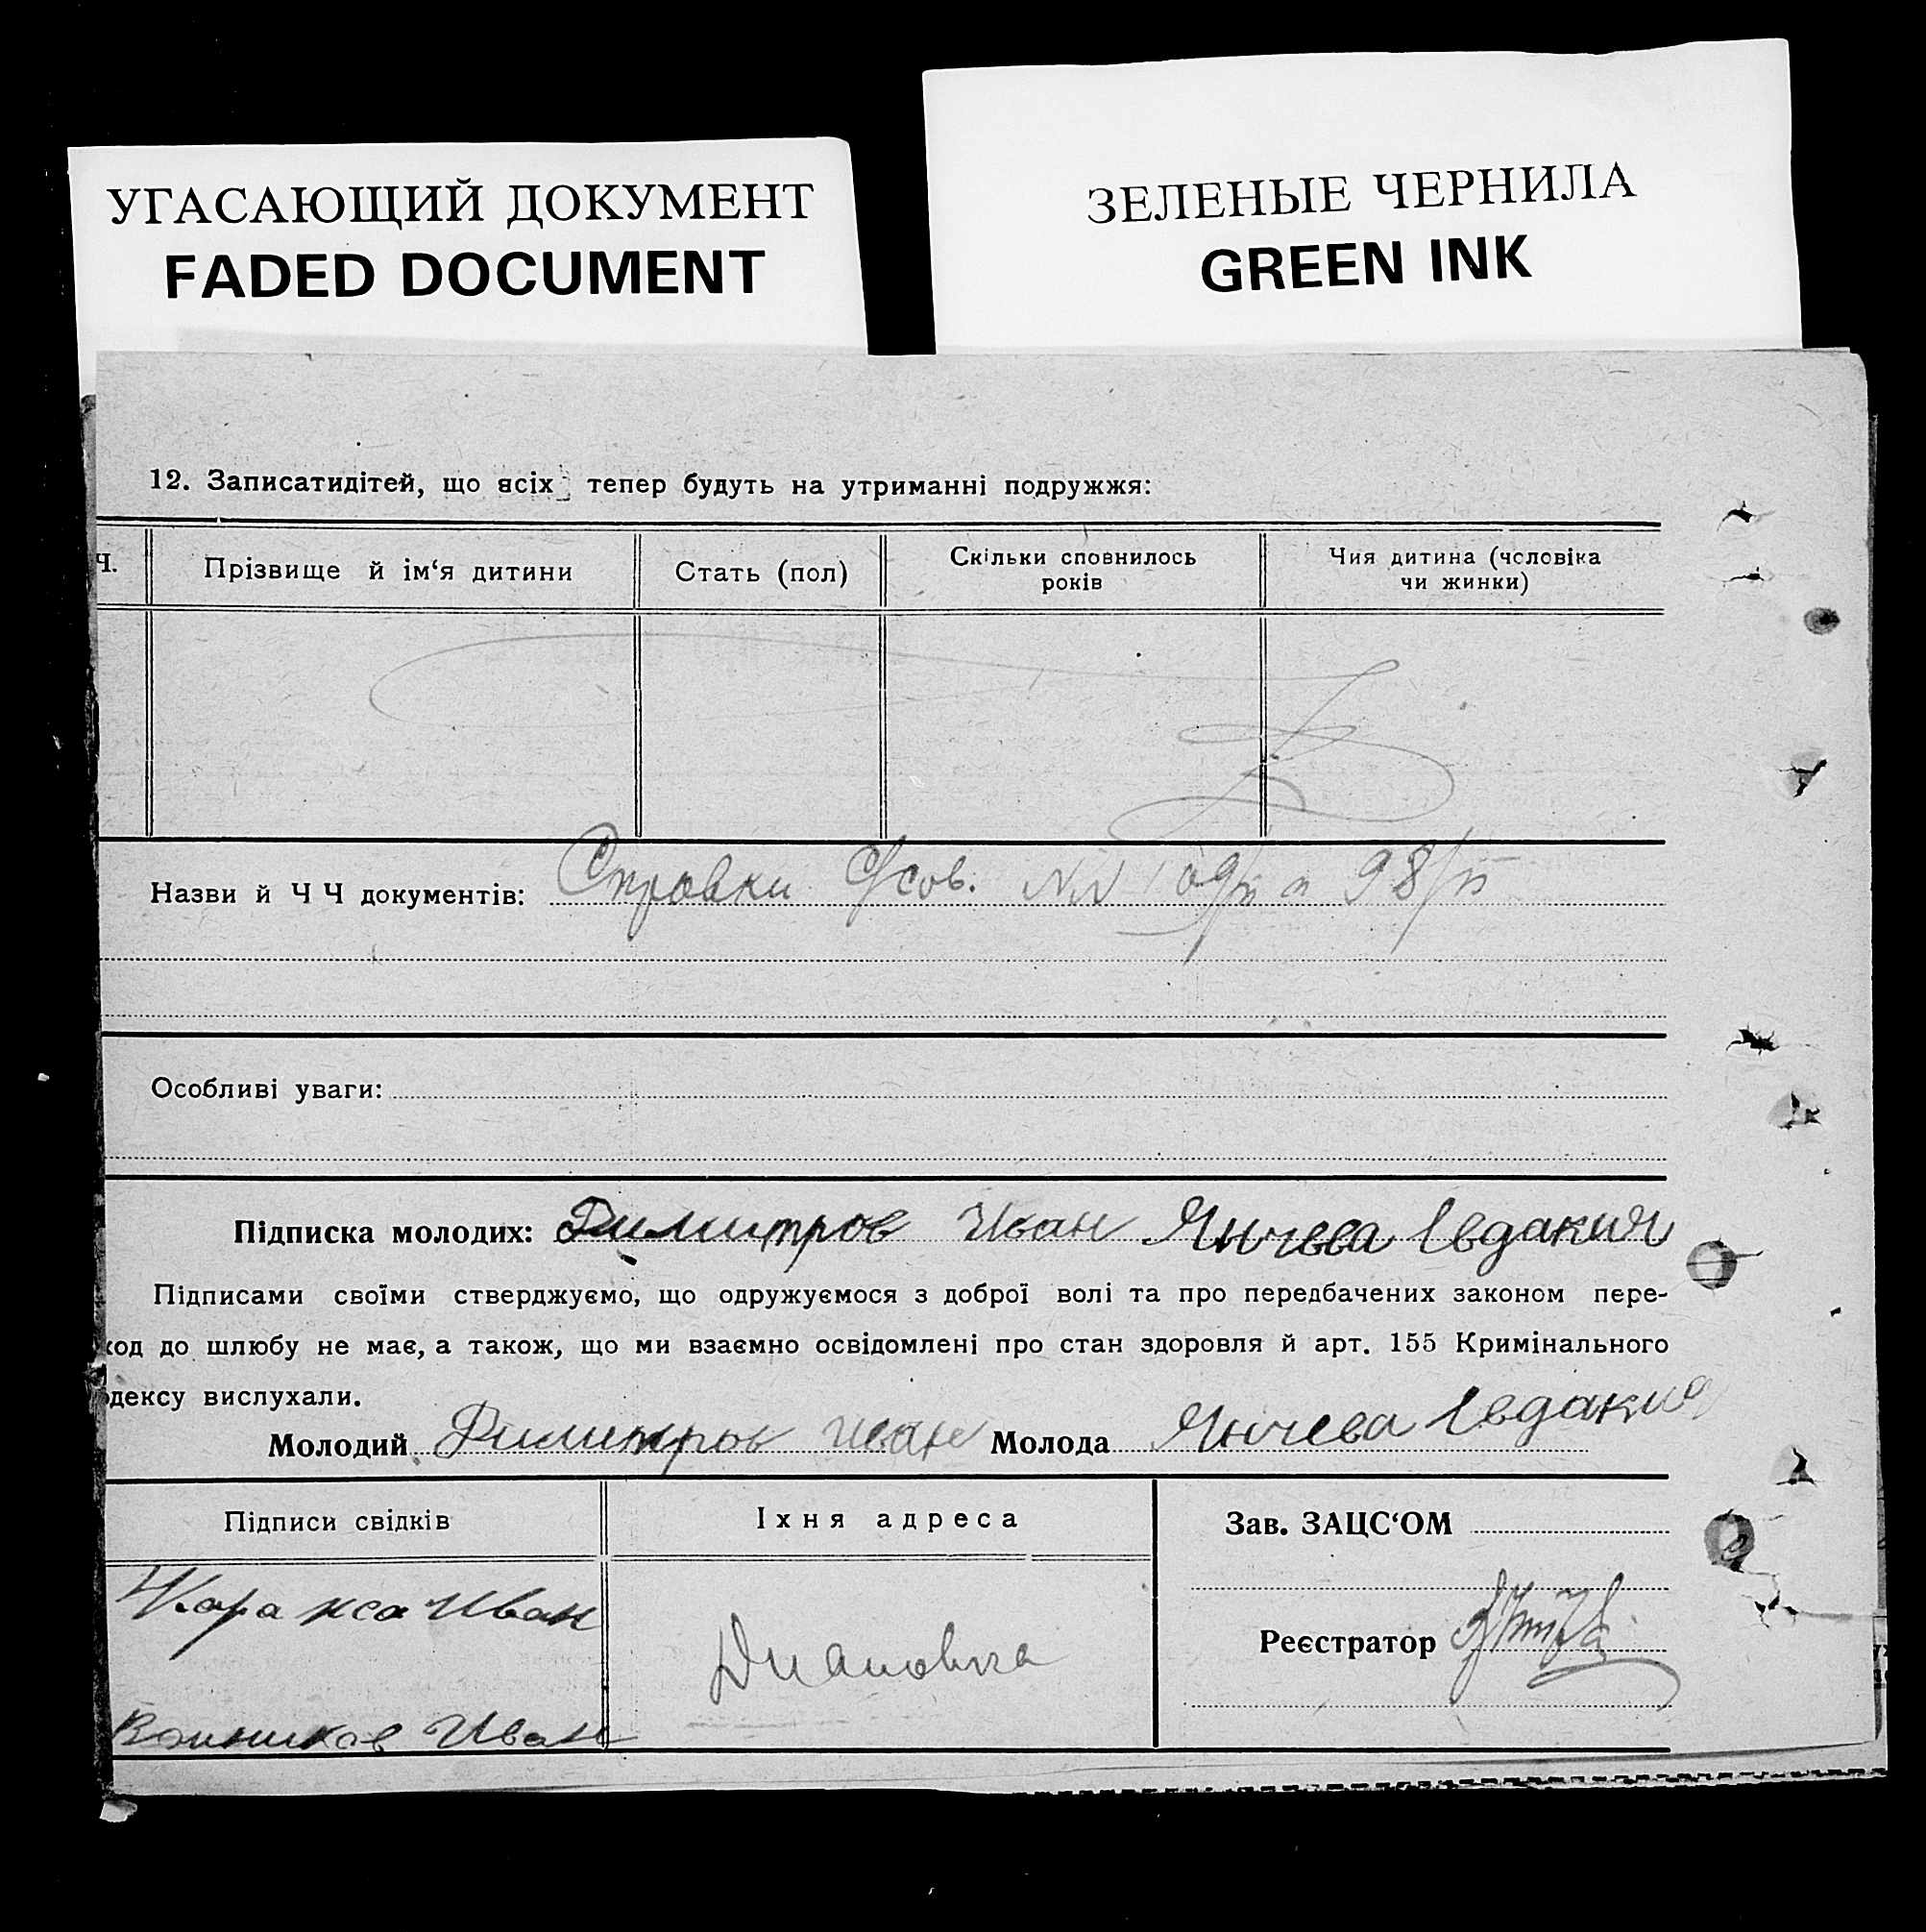 УГАСАЮЩИЙ ДОКУМЕНТ
FADED DOCUMENT
ЗЕЛЕНЫЕ ЧЕРНИЛА
GREEN INK
12. Записатидітей, що всіх тепер будуть на утриманні подружжя:
Ч.
Прізвище й ім‘я дитини
Стать (пол)
Скільки сповнилось
років
Чия дитина (чоловіка
чи жинки)
Назви й Ч Ч документів: Справки С/сов. NN 109/п и 98/п
Особливі уваги:
Підписка молодих: Димитров Иван Янчева Евдакия
Підписами своїми стверджуємо, що одружуємося з доброї волі та про передбачених законом пере-
код до шлюбу не має, а також, що ми взаємно освідомлені про стан здоровля й арт. 155 Кримінального
дексу вислухали.
Молодий Димитров Иван Молода Янчева Евдакия
Підписи свідків
Їхня адреса
Зав. ЗАЦС‘ОМ
Иван
Реєстратор
Дианovка
Войников Иван